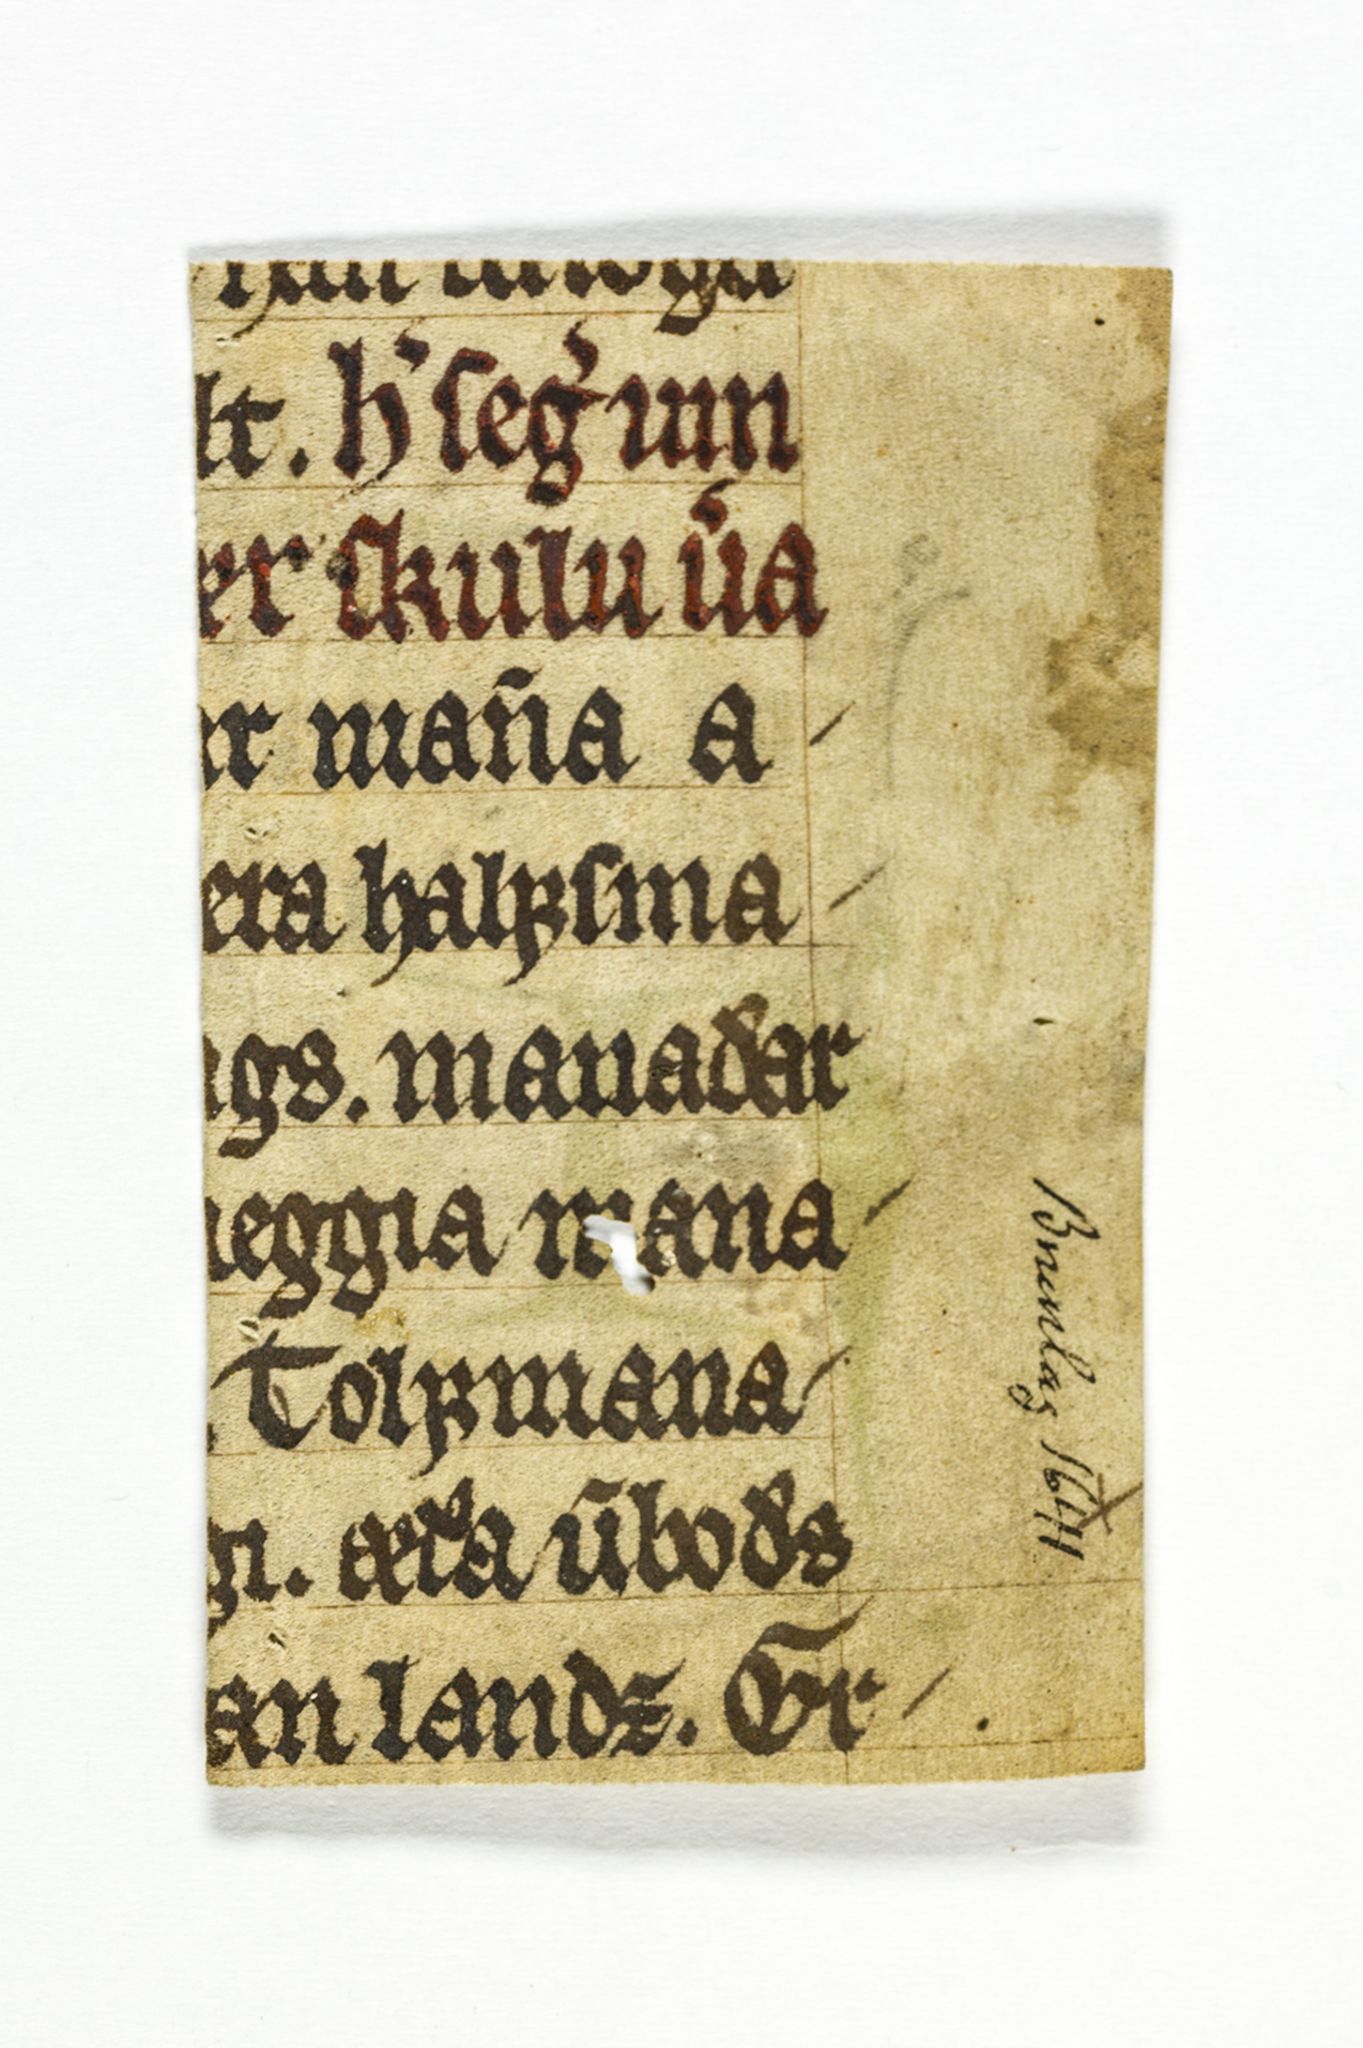 lt. h̛ seg̛ um
er skulu ưa
ar man̄a a
era halꝼsma
ags. manaðar
ueggia mana
. Tolꝼmana
gi. æða ūboðs
an landz. Gr
Bnemlag 1644